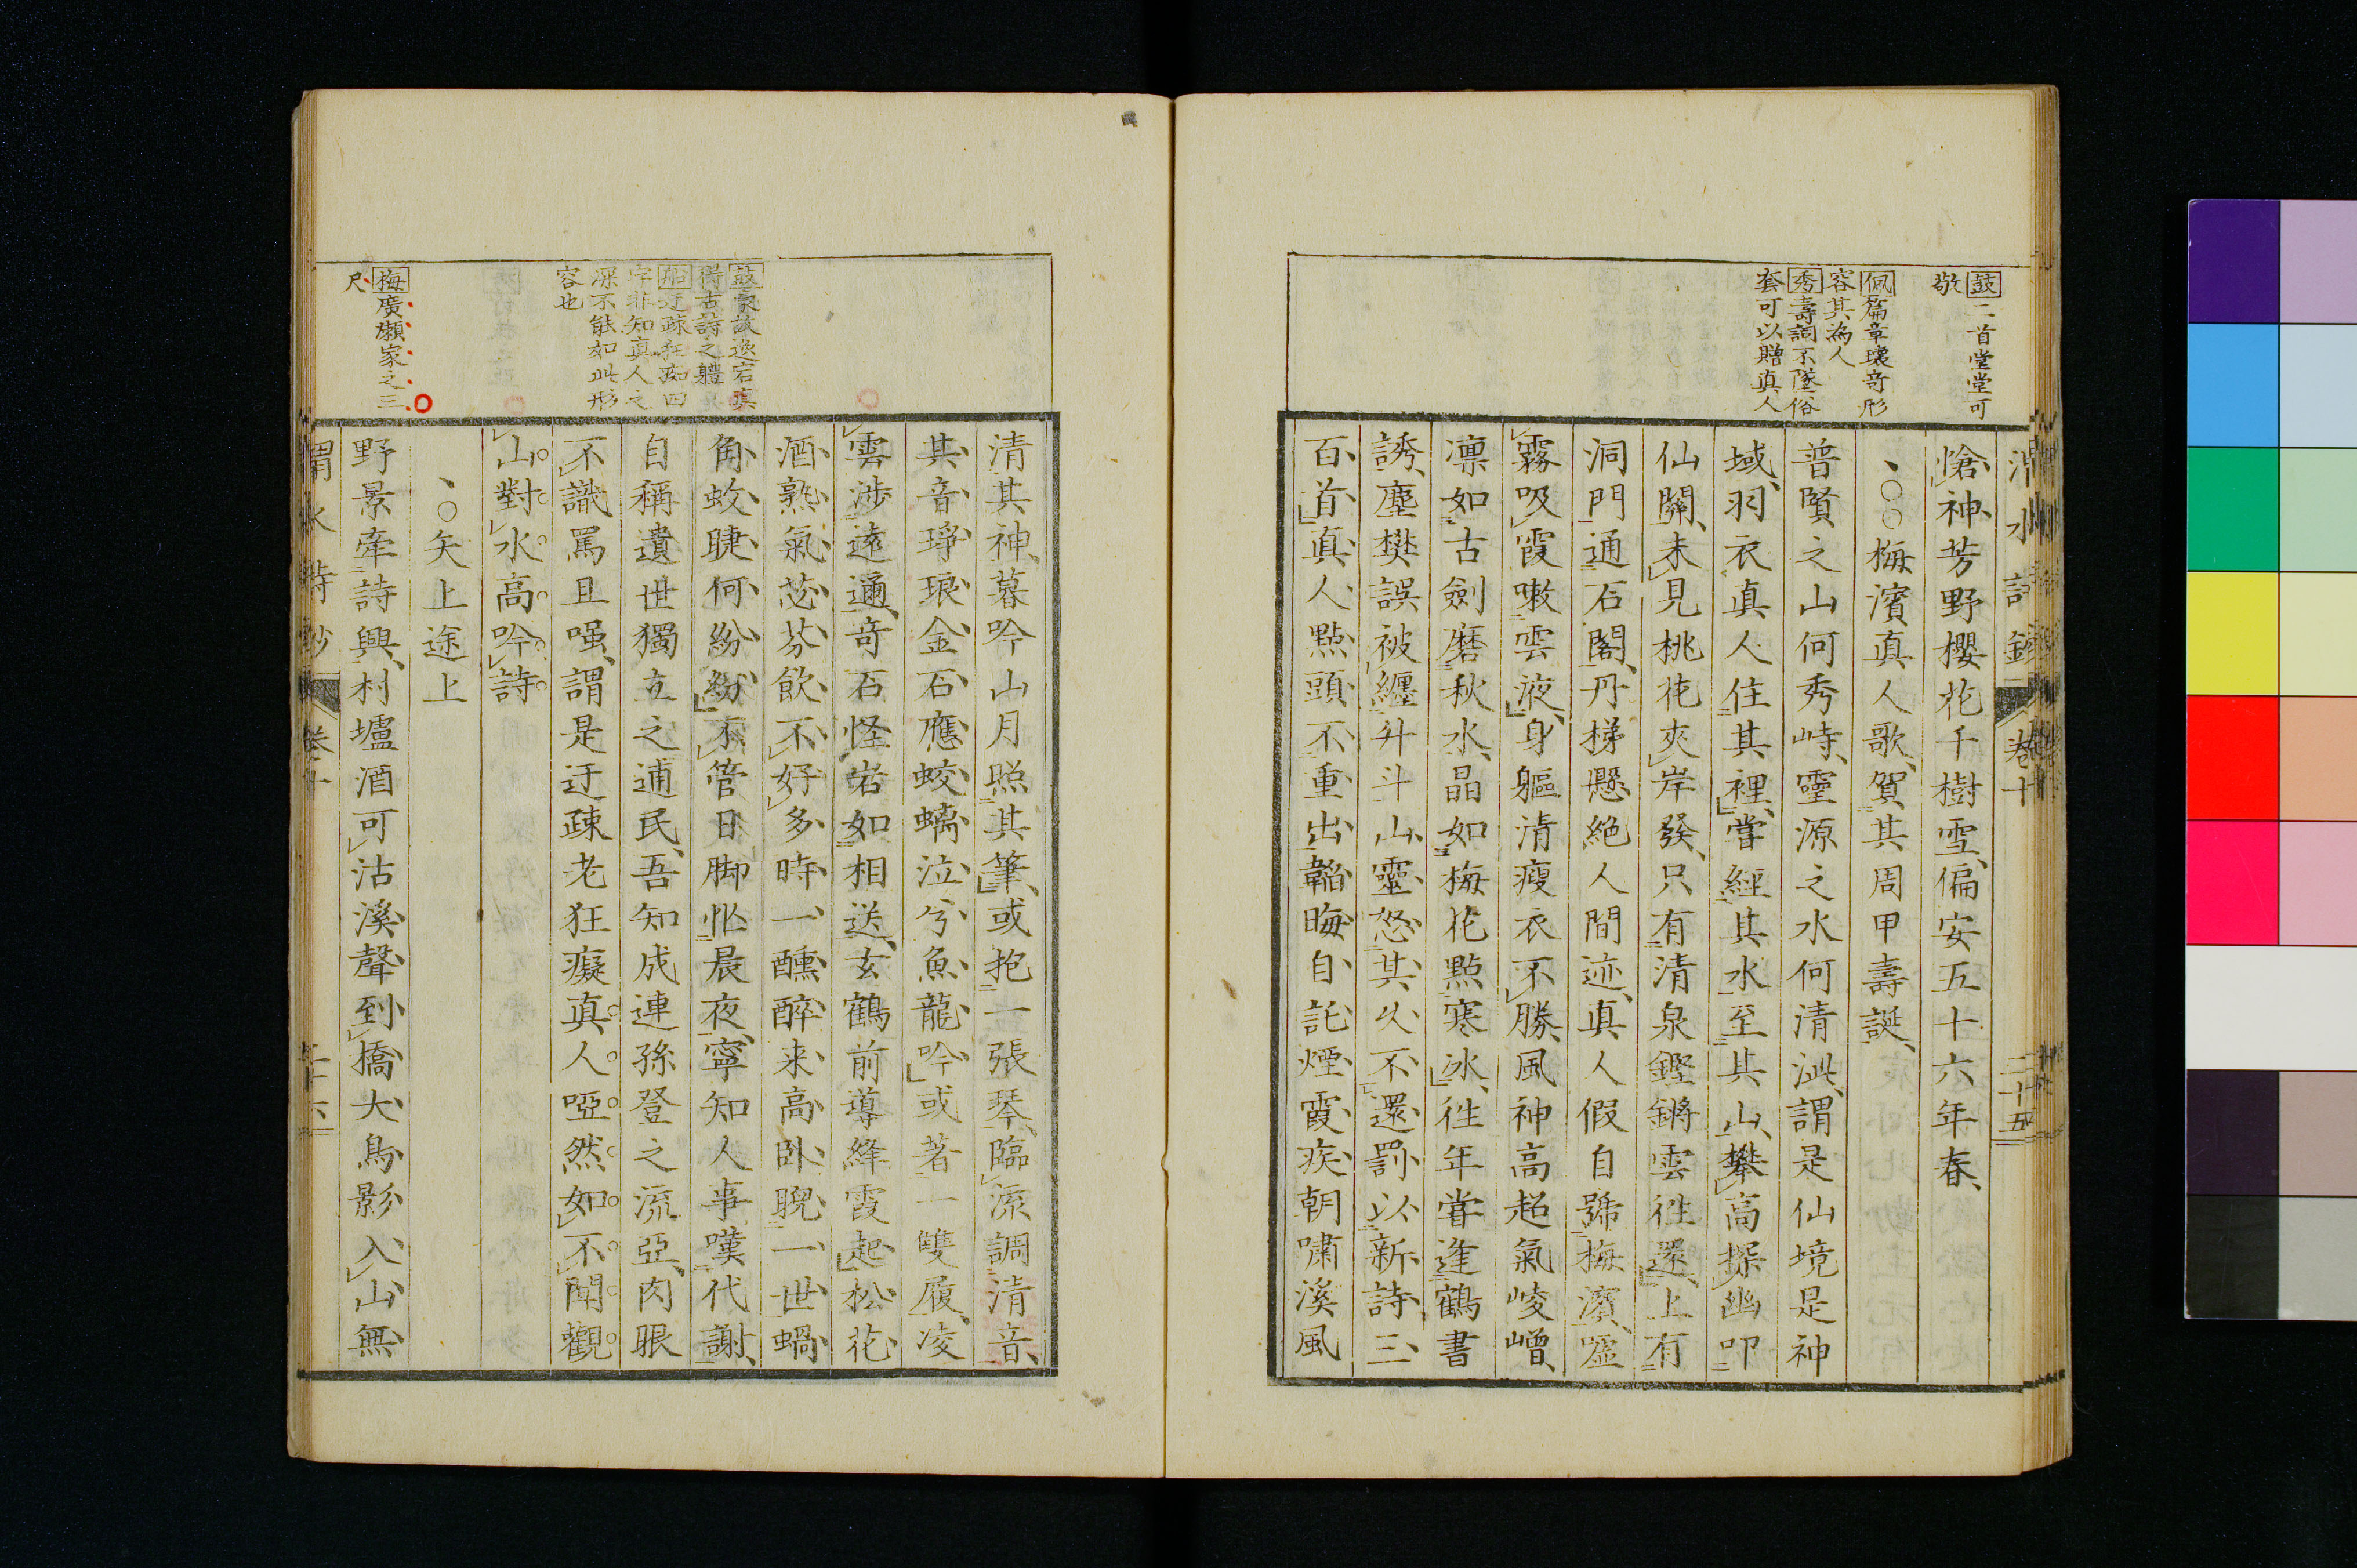 鼓二首堂堂可
敬
佩篇章瓌奇形
容其為人
秀壽詞不墜俗
套可以贈真人
卷十
二十五
愴神芳野櫻花千樹雪偏安五十六年春
梅濱真人歌賀其周甲壽誕
普賢之山何秀峙靈源之水何清泚謂是仙境是神
域羽衣真人住其裡嘗經其水至其山攀高探幽叩
仙關未見桃花夾岸發只有清泉鏗鏘雲徃還上有
洞門通石閣丹梯懸絶人間迹真人假自號梅濱噓
霧吸霞嗽雲液身軀清瘦衣不勝風神高超氣崚嶒
凛如古劍磨秋水晶如梅花點寒冰徃年嘗逢鶴書
誘塵樊誤被纏升斗山靈怒其久不還罰以新詩三
百首真人點頭不重出韜晦自託煙霞疾朝嘯溪風
鼓豪放逸宕真
得古詩之體
船迂疎狂痴四
字非知真人之
深不能如此形
容也
梅廣瀨家之三
尺
清其神暮吟山月照其筆或抱一張琴臨流調清音
其音琤琅金石應蛟螭泣兮魚龍吟或著一雙履凌
雲涉遠邇奇石怪岩如相送玄鶴前導絳霞起松花
酒熟氣苾芬飲不好多時一醺醉来高臥睨一世蝸
角蚊睫何紛紛不管日脚忙晨夜寧知人事嘆代謝
自稱遺世獨立之逋民吾知成連孫登之流亞肉眼
不識罵且嗤謂是迂疎老狂癡真人啞然如不聞觀
山對水高吟詩
矢上途上
野景牽詩興村壚酒可沽溪聲到橋大鳥影入山無
渭水詩鈔
卷十
二十六